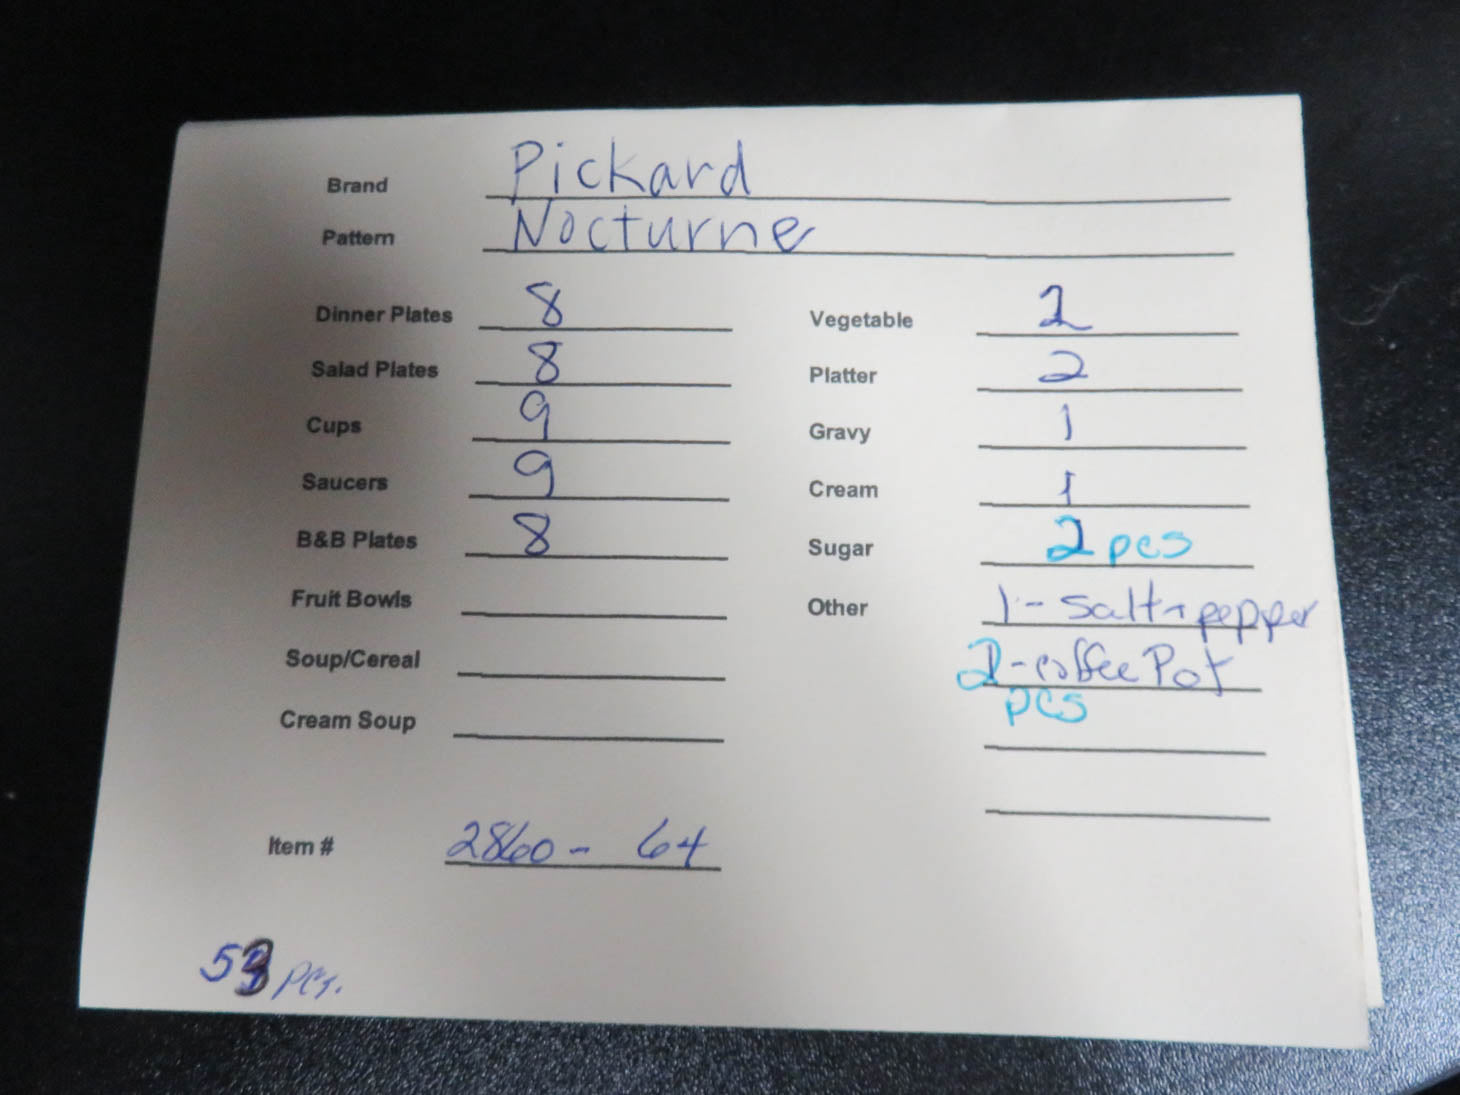 Brand Pickard
Pattern Nocturne
Dinner Plates 8 Vegetable 2
Salad Plates 8 Platter 2
Cups 9 Gravy 1
Saucers 9 Cream 1
B&B Plates 8 Sugar 2 pcs
Fruit Bowls Other 1 - Salt + pepper
Soup/Cereal 2 - coffee Pot
pcs
Cream Soup
Item # 2860 - 64
53 pcs.